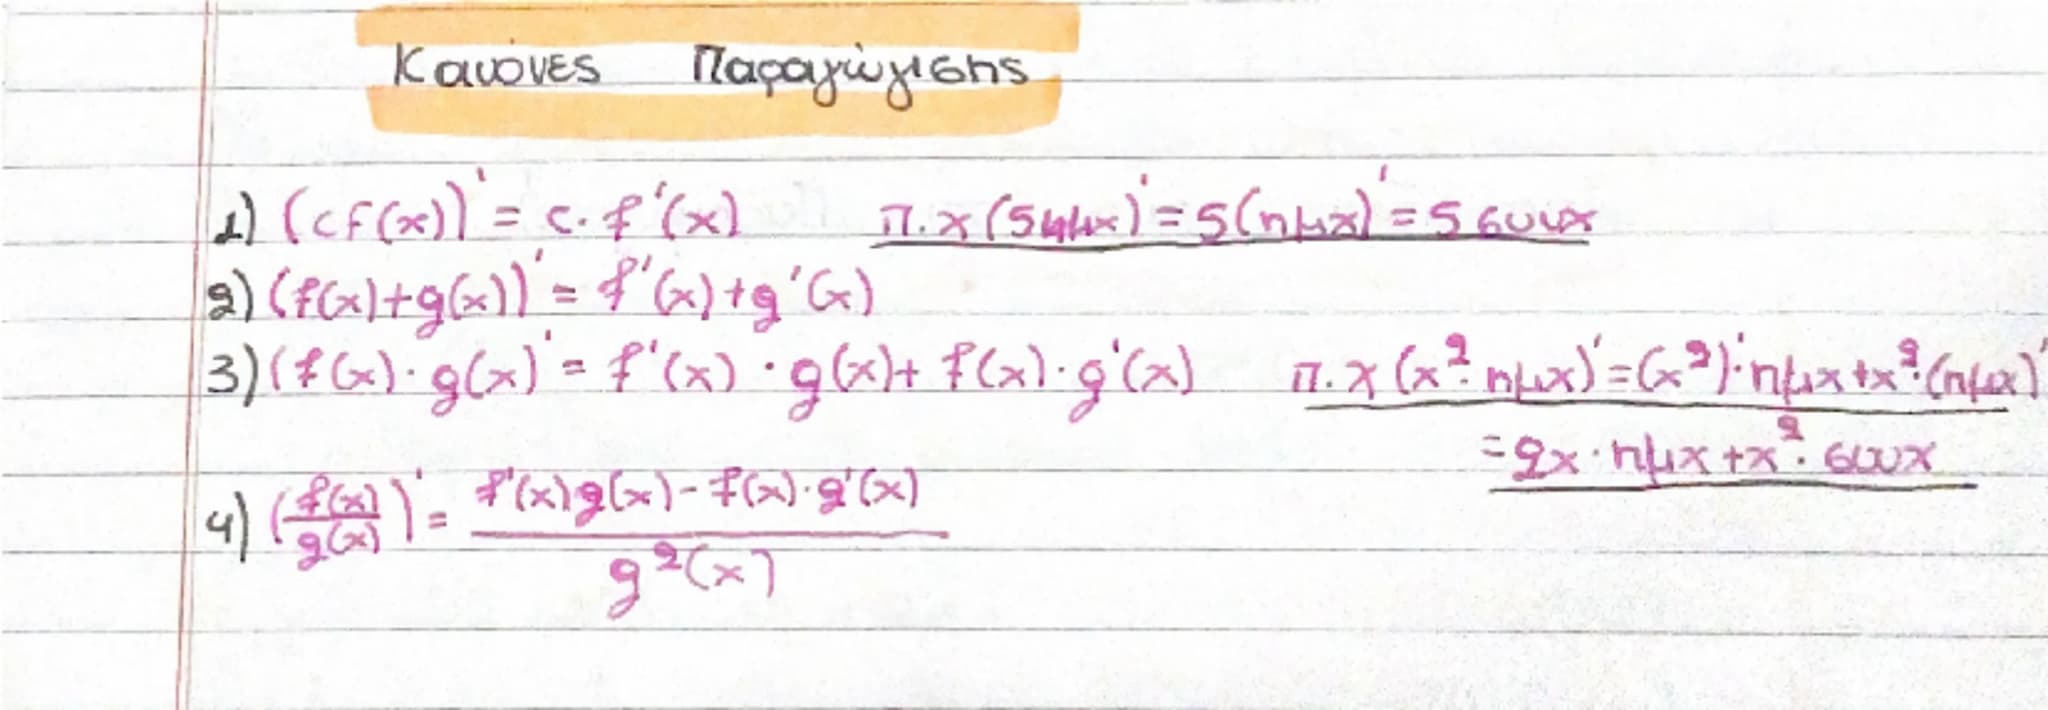 Κανόνες Παραγώγισης
1) (cf(x))' = c. f'(x) π.χ (5ημx)' = 5(ημx)' = 5συνx
2) (f(x)+g(x))' = f'(x)+g'(x)
3) (f(x)·g(x)' = f'(x) · g(x)+ f(x)·g'(x) π.χ (x²·ημx)'=(x²)'·ημx+x²·(ημx)'
=2x·ημx+x²·συνx
4) (f(x)/g(x))' = f'(x)g(x)-f(x)·g'(x) / g²(x)